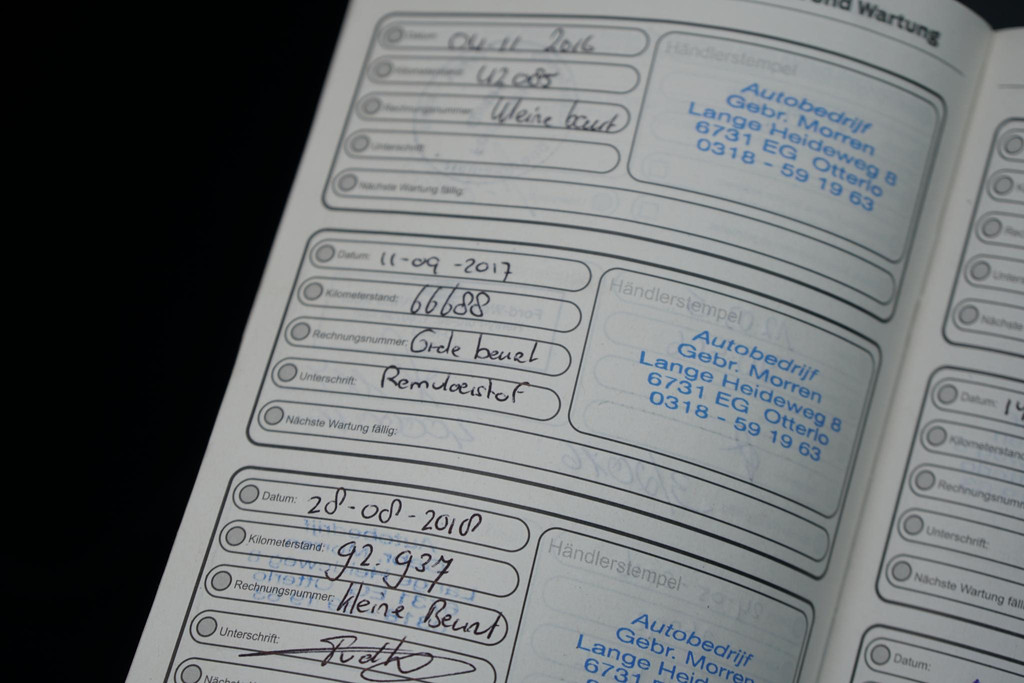 und Wartung
Datum: 04 11 2016
Kilometerstand: 42085
Rechnungsnummer: kleine beurt
Unterschrift:
Nächste Wartung fällig:
Händlerstempel
Autobedrijf
Gebr. Morren
Lange Heideweg 8
6731 EG Otterlo
0318 - 59 19 63
Datum: 11-09-2017
Kilometerstand: 66688
Rechnungsnummer: Grote beurt
Unterschrift: Remvloeistof
Nächste Wartung fällig:
Händlerstempel
Autobedrijf
Gebr. Morren
Lange Heideweg 8
6731 EG Otterlo
0318 - 59 19 63
Datum: 28-08-2018
Kilometerstand: 92.937
Rechnungsnummer: kleine Beurt
Unterschrift:
Nächs
Händlerstempel
Autobedrijf
Gebr. Morren
Lange Heideweg 8
6731 EG Otterlo
Rech
Unter
Nächste
Datum: 14
Kilometerstand
Rechnungsnum
Unterschrift:
Nächste Wartung fäll
Datum: